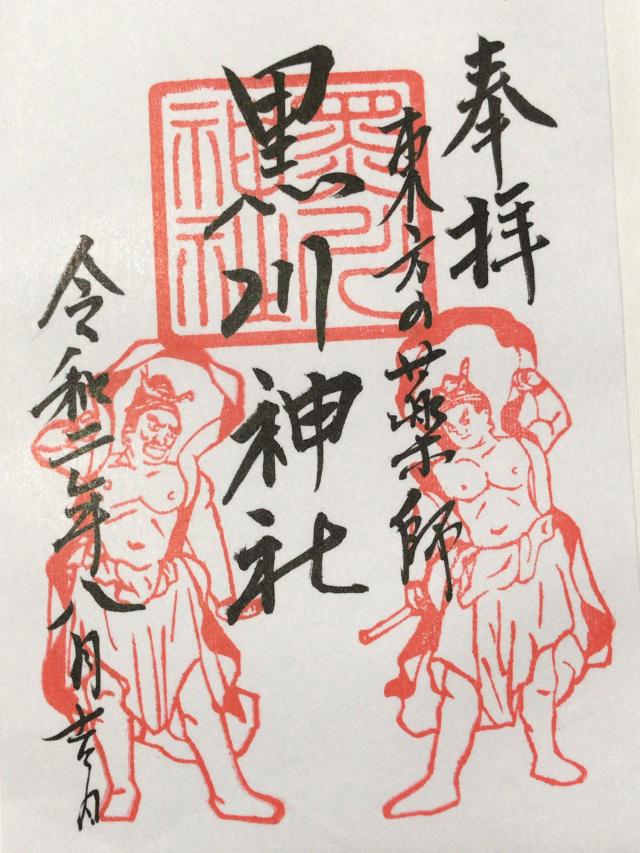 奉拝
東方の薬師
黒川神社
黒川
神社
令和二年八月吉日